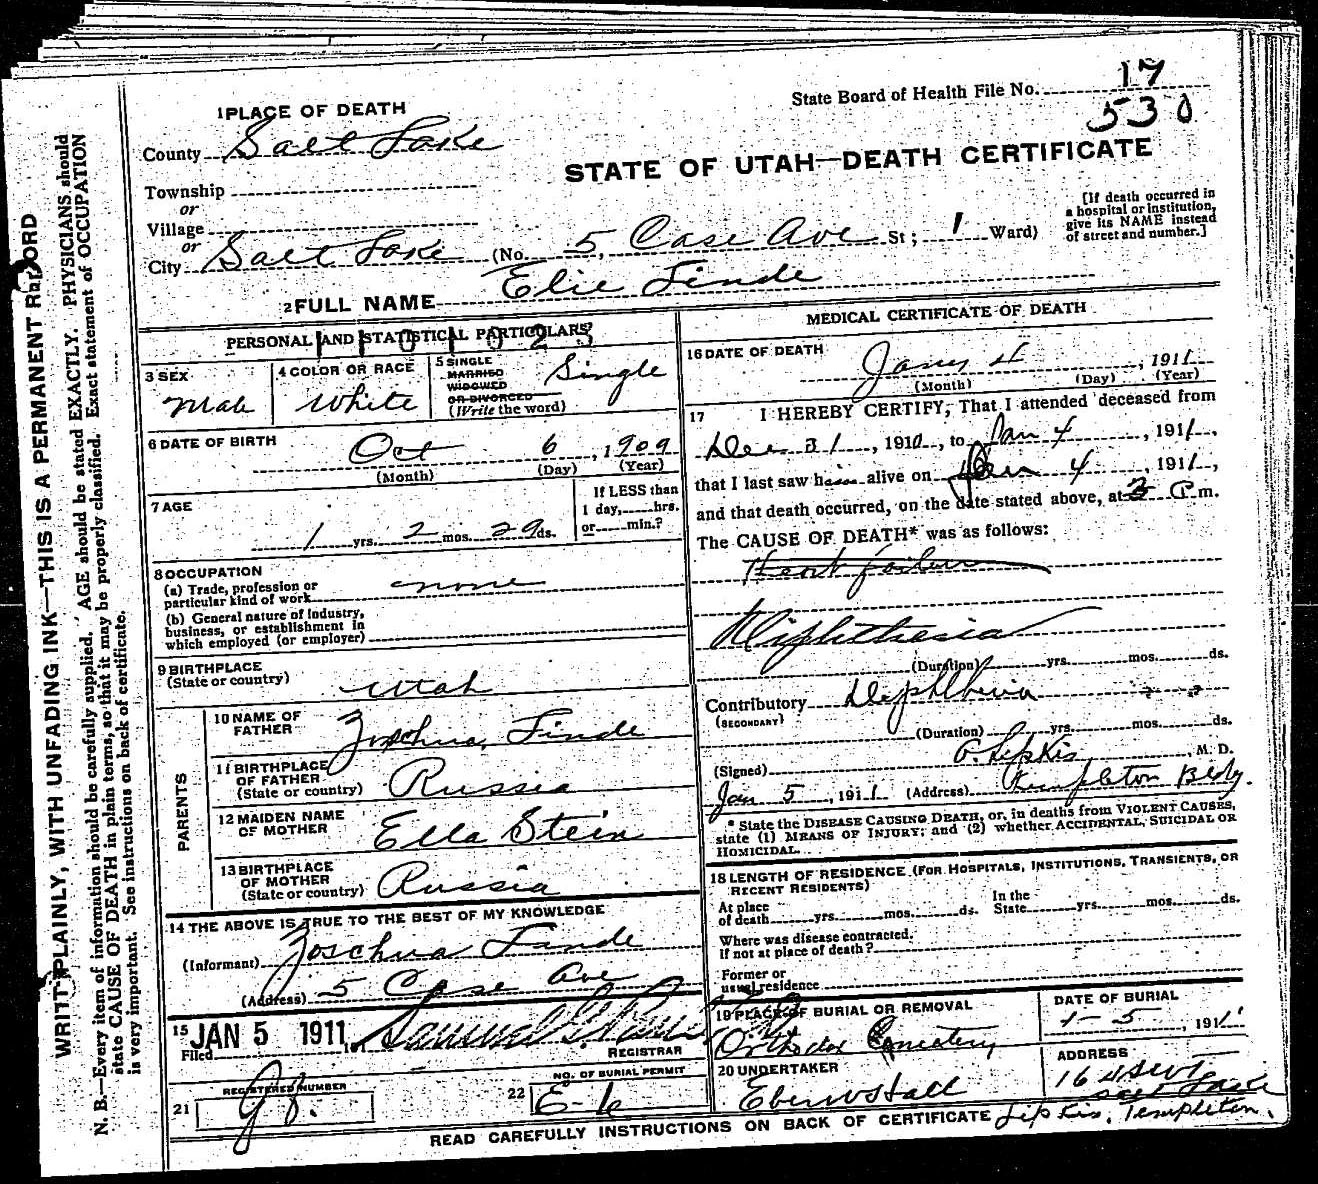 17
State Board of Health File No.
530
1 PLACE OF DEATH
County Salt Lake
STATE OF UTAH—DEATH CERTIFICATE
Township
or
Village
or
City Salt Lake (No. 5, Case Ave St; 1 Ward)
[If death occurred in
a hospital or institution,
give its NAME instead
of street and number.]
2 FULL NAME Elie Linde
PERSONAL AND STATISTICAL PARTICULARS
3 SEX
Male
4 COLOR OR RACE
White
5 SINGLE
MARRIED
WIDOWED
OR DIVORCED
(Write the word)
Single
6 DATE OF BIRTH
Oct 6, 1909
(Month) (Day) (Year)
7 AGE
1 yrs. 2 mos. 29 ds.
If LESS than
1 day, hrs.
or min.?
8 OCCUPATION
(a) Trade, profession or
particular kind of work none
(b) General nature of industry,
business, or establishment in
which employed (or employer)
9 BIRTHPLACE
(State or country)
Utah
PARENTS
10 NAME OF
FATHER
Zoschua Linde
11 BIRTHPLACE
OF FATHER
(State or country)
Russia
12 MAIDEN NAME
OF MOTHER
Ella Stein
13 BIRTHPLACE
OF MOTHER
(State or country)
Russia
14 THE ABOVE IS TRUE TO THE BEST OF MY KNOWLEDGE
(Informant) Zoschua Linde
(Address) 5 Case Ave
15
Filed JAN 5 1911, 191
Samuel G.
REGISTRAR
REGISTERED NUMBER
21
NO. OF BURIAL PERMIT
22 E-6
MEDICAL CERTIFICATE OF DEATH
16 DATE OF DEATH
Jany 4, 1911
(Month) (Day) (Year)
17 I HEREBY CERTIFY, That I attended deceased from
Dec 31, 1910, to Jan 4, 1911,
that I last saw him alive on Jan 4, 1911,
and that death occurred, on the date stated above, at 3 P.m.
The CAUSE OF DEATH* was as follows:
Heart failure
Diphtheria
(Duration) yrs. mos. ds.
Contributory Diphtheria
(SECONDARY)
(Duration) yrs. mos. ds.
(Signed) P. Lipkis, M. D.
Jan 5, 1911 (Address) Templeton Bldg.
* State the DISEASE CAUSING DEATH, or, in deaths from VIOLENT CAUSES,
state (1) MEANS OF INJURY; and (2) whether ACCIDENTAL, SUICIDAL OR
HOMICIDAL.
18 LENGTH OF RESIDENCE (FOR HOSPITALS, INSTITUTIONS, TRANSIENTS, OR
RECENT RESIDENTS)
At place
of death yrs. mos. ds.
In the
State yrs. mos. ds.
Where was disease contracted,
If not at place of death?
Former or
usual residence
19 PLACE OF BURIAL OR REMOVAL
Orthodox Cemetery
DATE OF BURIAL
1-5, 1911
20 UNDERTAKER
Eber W Hall
ADDRESS
164
Salt Lake
READ CAREFULLY INSTRUCTIONS ON BACK OF CERTIFICATE Lipkis, Templeton.
WRITE PLAINLY, WITH UNFADING INK—THIS IS A PERMANENT RECORD
N. B.—Every item of information should be carefully supplied. AGE should be stated EXACTLY. PHYSICIANS should
state CAUSE OF DEATH in plain terms, so that it may be properly classified. Exact statement of OCCUPATION
is very important. See instructions on back of certificate.